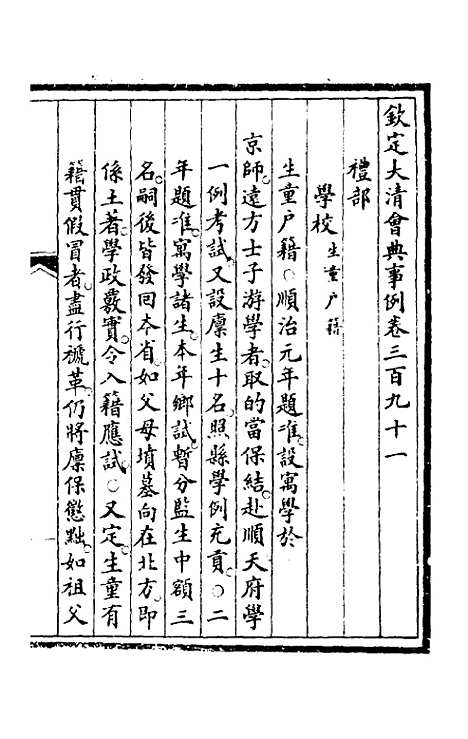 欽定大清會典事例卷三百九十一
禮部
學校生童户籍
生童户籍○順治元年題准設寓學於
京師遠方士子游學者取的當保結赴順天府學
一例考試又設廩生十名照縣學例充貢○二
年題准寓學諸生本年鄉試暫分監生中額三
名嗣後皆發回本省如父母墳墓向在北方即
係土著學政覈實令入籍應試○又定生童有
籍貫假冒者盡行褫革仍將廩保懲黜如祖父